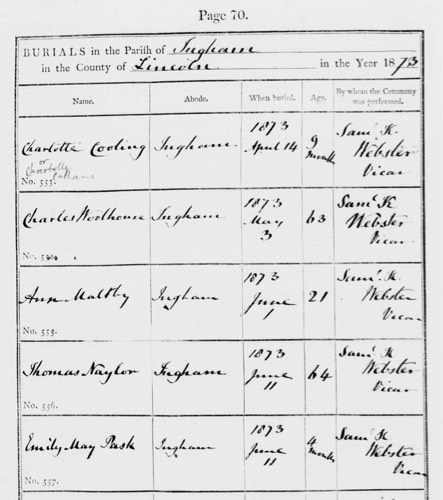 Page 70.
BURIALS in the Parish of Ingham
in the County of Lincoln in the Year 1873
Name. Abode. When buried. Age. By whom the Ceremony was performed.
Charlotte Cooling Ingham. 1873 April 14 9 months Saml. K. Webster Vicar
or
No. 553.
Charles Woolhouse Ingham 1873 May 3 63 Saml. K Webster Vicar
No. 554.
Ann Maltby Ingham 1873 June 1 21 Saml. K. Webster Vicar
No. 555.
Thomas Naylor Ingham 1873 June 11 64 Saml. K Webster Vicar
No. 556.
Emily May Pask Ingham 1873 June 11 4 months Saml. K Webster Vicar
No. 557.